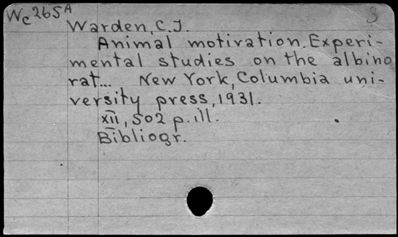 Wc265A
3
Warden, C.J.
Animal motivation. Experi-
mental studies on the albino
rat... New York, Columbia uni-
versity press, 1931.
XII, 502 p. ill.
Bibliogr.